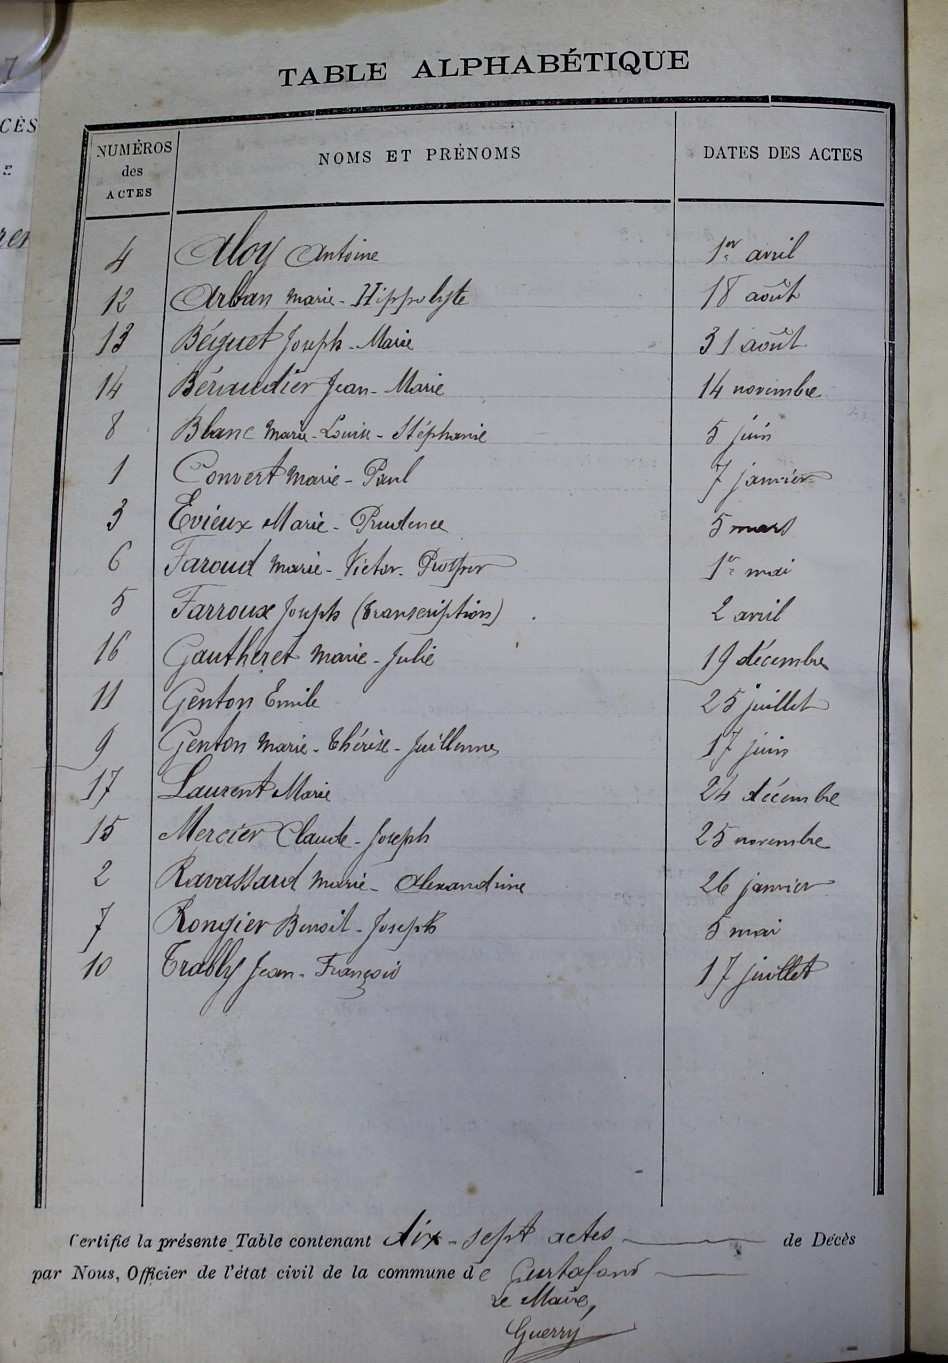 TABLE ALPHABÉTIQUE
CÈS
NUMÉROS des ACTES NOMS ET PRÉNOMS DATES DES ACTES
4 Aloy Antoine 1er avril
12 Arban Marie-Hippolyte 18 août
13 Béguet Joseph-Marie 31 août
14 Béraudier Jean-Marie 14 novembre
8 Blanc Marie-Louise-Stéphanie 5 juin
1 Convert Marie-Paul 7 janvier
3 Evieux Marie-Prudence 5 mars
6 Faroud Marie-Victor-Prosper 1er mai
5 Farroux Joseph (transcription) 2 avril
16 Gautheret Marie-Julie 19 décembre
11 Genton Emile 25 juillet
9 Genton Marie-Thérèse-Juillenne 17 juin
17 Laurent Marie 24 décembre
15 Mercier Claude-Joseph 25 novembre
2 Ravassard Marie-Alexandrine 26 janvier
7 Rongier Benoit-Joseph 5 mai
10 Trably Jean-François 17 juillet
Certifié la présente Table contenant dix-sept actes de Décès
par Nous, Officier de l'état civil de la commune de Curtafond
Le Maire,
Guerry